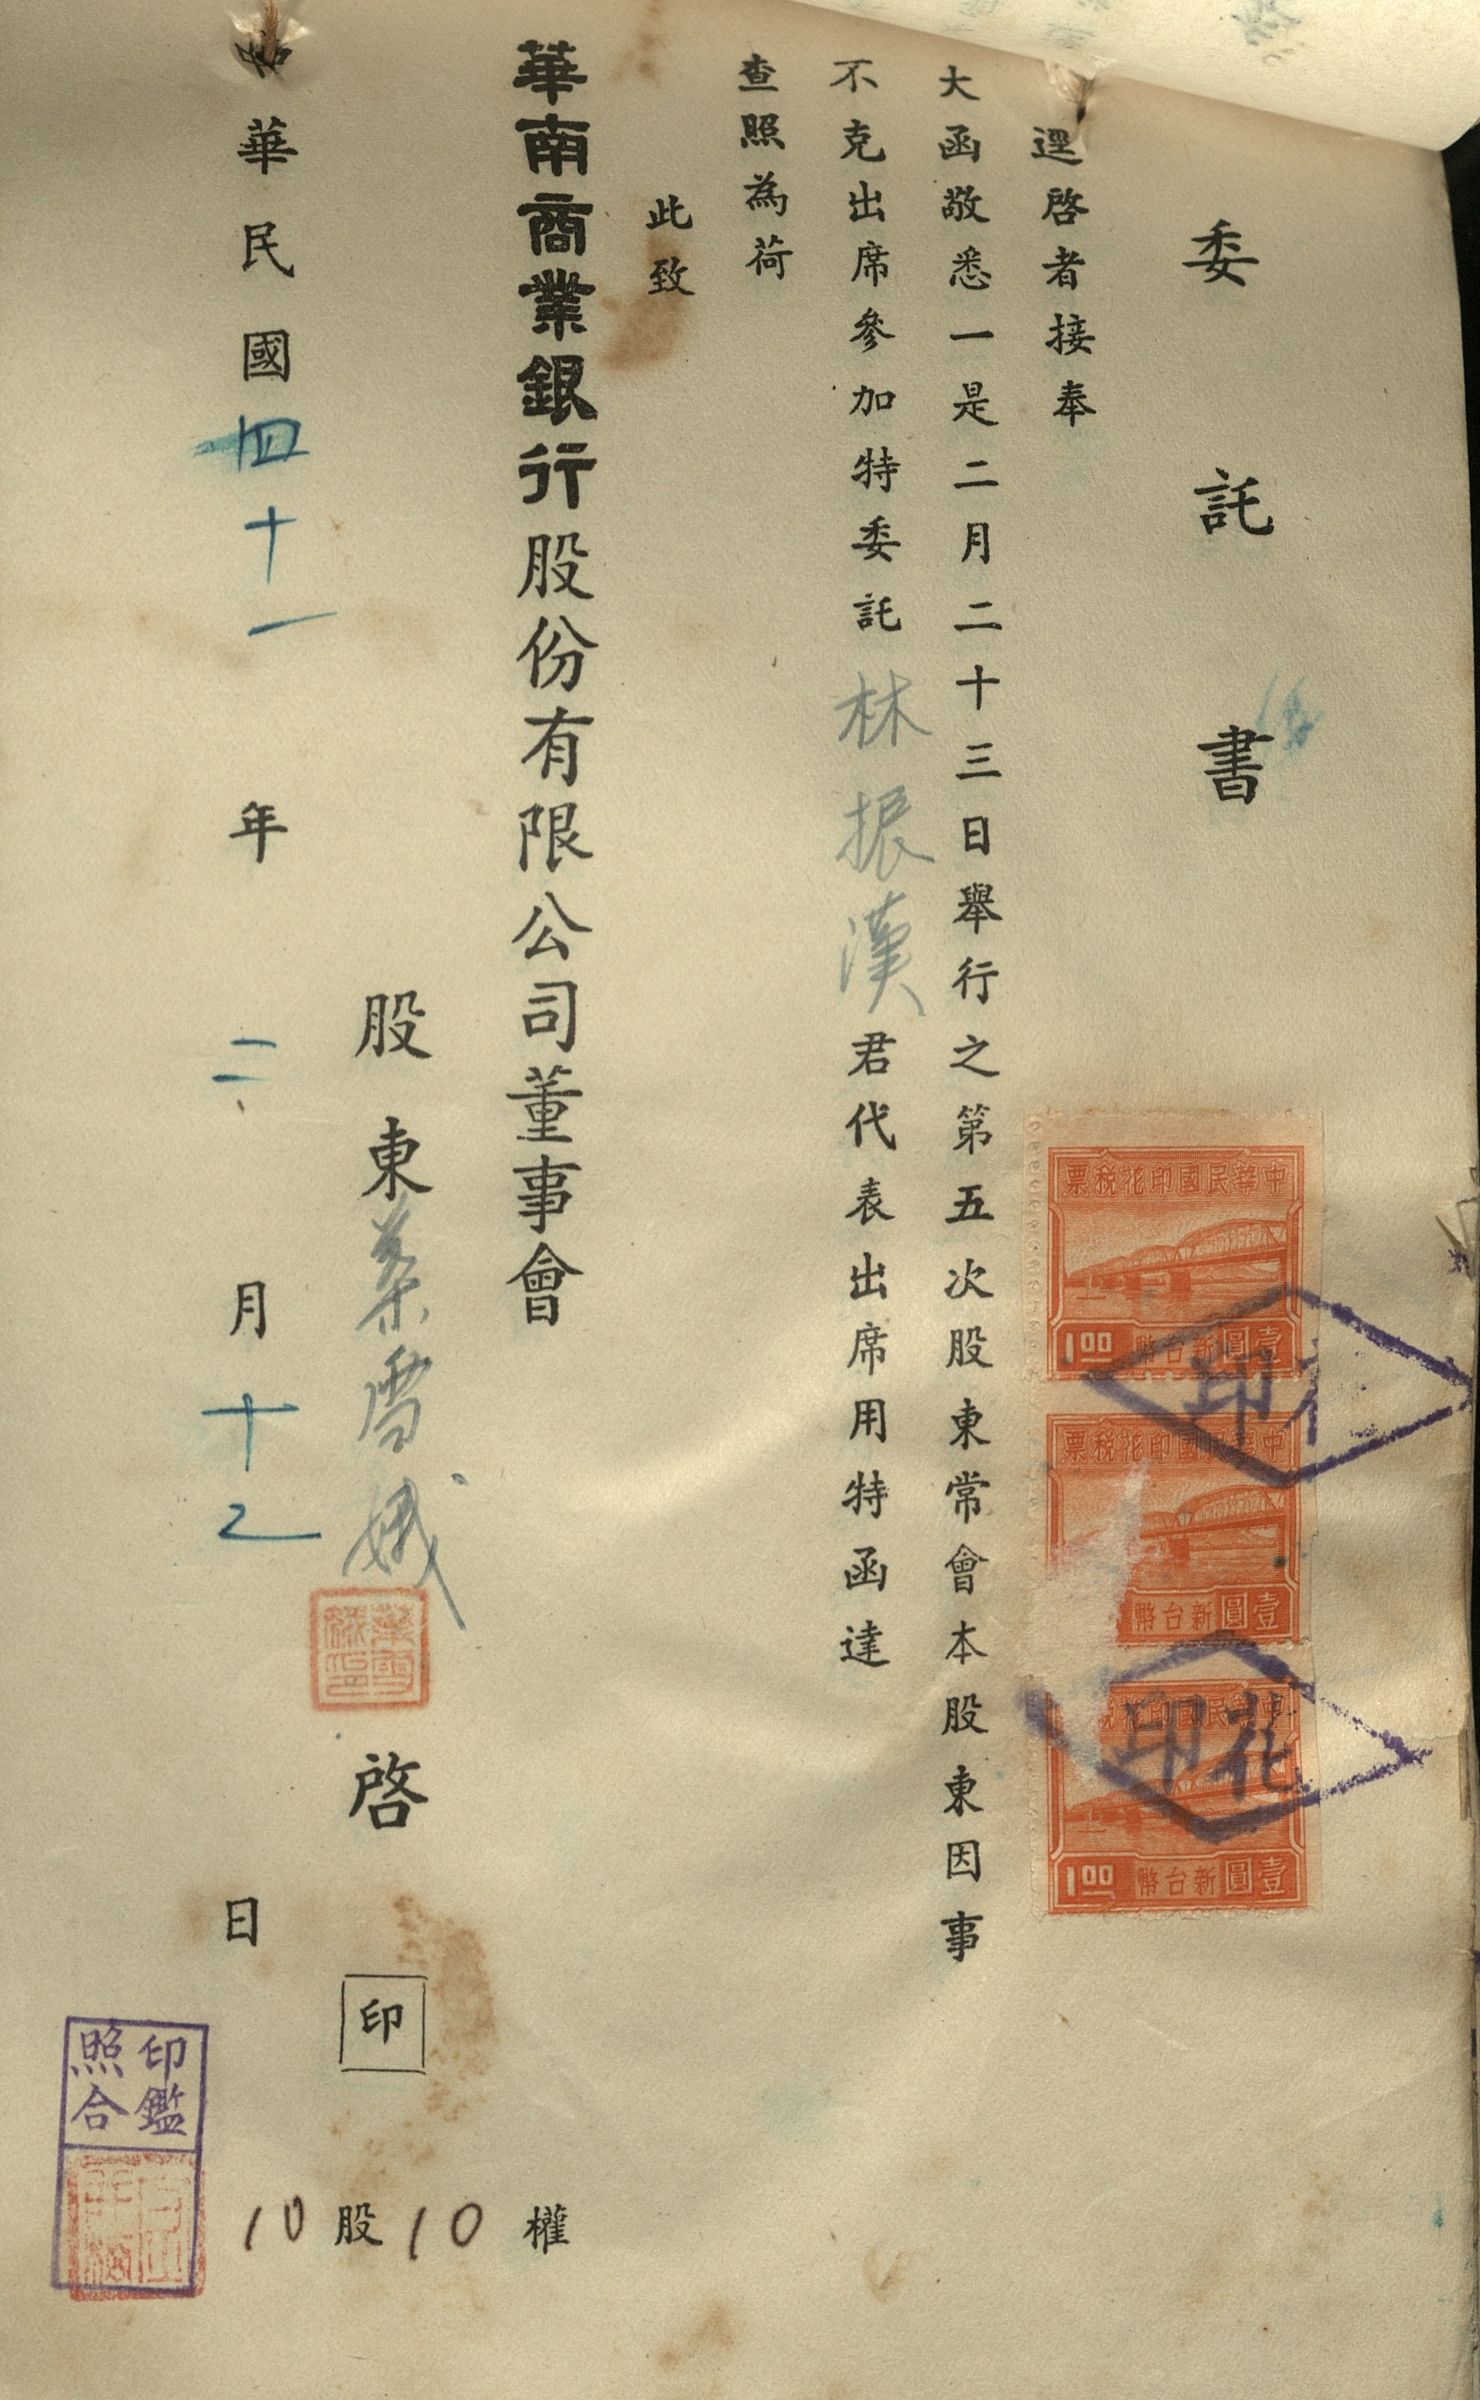 委託書
逕啓者接奉
大函敬悉一是二月二十三日舉行之第五次股東常會本股東因事
不克出席參加特委託林振漢君代表出席用特函達
查照為荷
此致
華南商業銀行股份有限公司董事會
股東葉雪娥啓 印
葉雪娥印
中華民國四十一年二月十乙日
10股10權
印鑑照合
中華民國印花稅票
壹圓新台幣 1.00
中華民國印花稅票
壹圓新台幣
中華民國印花稅票
壹圓新台幣 1.00
花印
花印